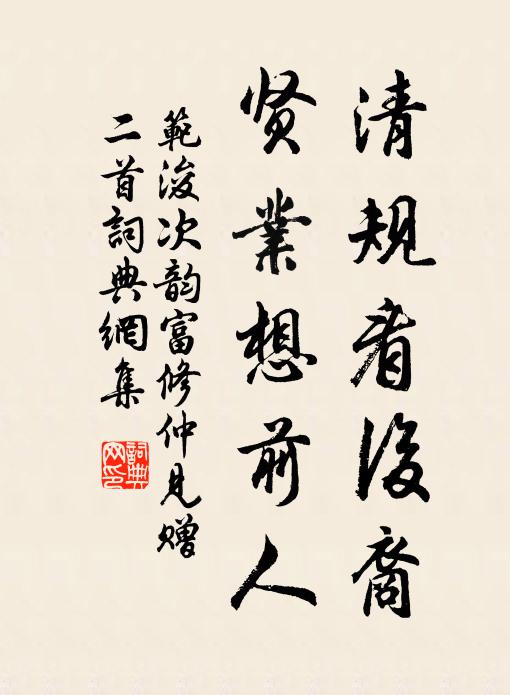 清规看後裔
贤業想前人
範浚次韵富修仲见赠
二首詞典網集
詞典网印